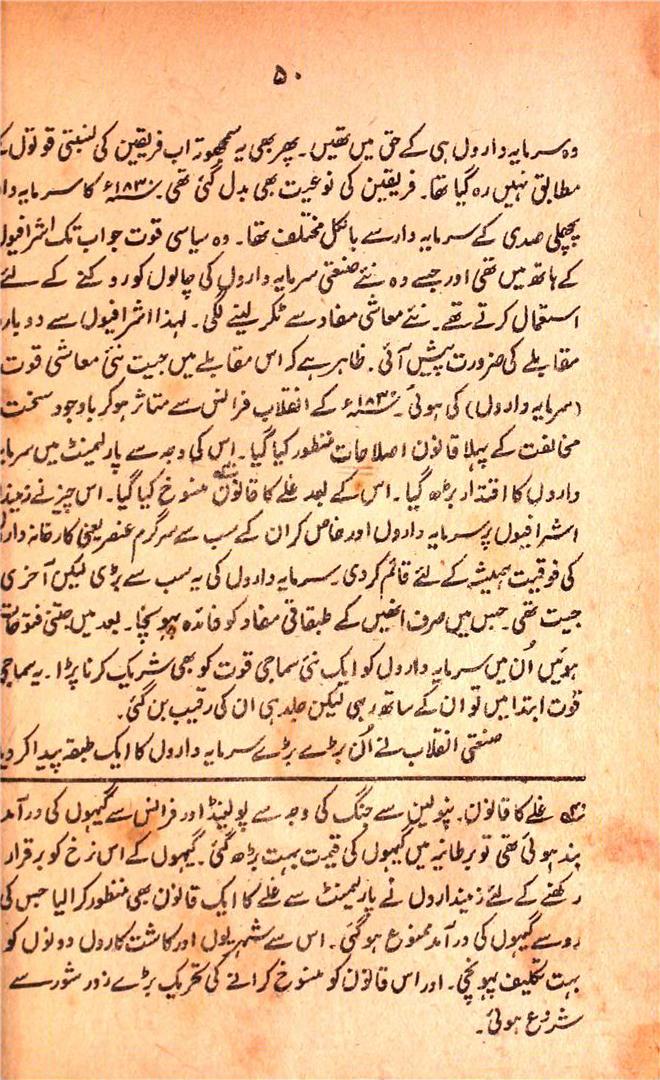 ۵۰
وہ سرمایہ داروں ہی کے حق میں تھیں۔ پھر بھی یہ سمجھوتہ اب فریقین کی نسبتی قوتوں کے
مطابق نہیں رہ گیا تھا۔ فریقین کی نوعیت بھی بدل گئی تھی۔ ۱۸۳۰ء کا سرمایہ دار
پچھلی صدی کے سرمایہ دار سے بالکل مختلف تھا۔ وہ سیاسی قوت جو اب تک اشرافیوں
کے ہاتھ میں تھی اور جسے وہ نئے صنعتی سرمایہ داروں کی چالوں کو روکنے کے لئے
استعمال کرتے تھے۔ نئے معاشی مفاد سے ٹکر لینے لگی۔ لہذا اشرافیوں سے دوبارہ
مقابلے کی ضرورت پیش آئی۔ ظاہر ہے کہ اس مقابلے میں جیت نئی معاشی قوت
(سرمایہ داروں) کی ہوئی۔ ۱۸۳۰ء کے انقلاب فرانس سے متاثر ہو کر باوجود سخت
مخالفت کے پہلا قانون اصلاحات منظور کیا گیا۔ اس کی وجہ سے پارلیمنٹ میں سرمایہ
داروں کا اقتدار بڑھ گیا۔ اس کے بعد غلے کا قانون منسوخ کیا گیا۔ اس چیز نے زمیندار
اشرافیوں پر سرمایہ داروں اور خاص کر ان کے سب سے سرگرم عنصر یعنی کارخانہ داروں
کی فوقیت ہمیشہ کے لئے قائم کر دی۔ سرمایہ داروں کی یہ سب سے بڑی لیکن آخری
جیت تھی۔ جس میں صرف انھیں کے طبقاتی مفاد کو فائدہ پہونچا۔ بعد میں جتنی فتوحات
ہوئیں اُن میں سرمایہ داروں کو ایک نئی سماجی قوت کو بھی شریک کرنا پڑا۔ یہ سماجی
قوت ابتدا میں تو ان کے ساتھ رہی لیکن جلد ہی ان کی رقیب بن گئی۔
صنعتی انقلاب نے اُن بڑے بڑے سرمایہ داروں کا ایک طبقہ پیدا کر دیا
غلے کا قانون۔ نپولین سے جنگ کی وجہ سے پولینڈ اور فرانس سے گیہوں کی درآمد
بند ہوئی تھی تو برطانیہ میں گیہوں کی قیمت بہت بڑھ گئی۔ گیہوں کے اس نرخ کو برقرار
رکھنے کے لئے زمینداروں نے پارلیمنٹ سے غلے کا ایک قانون بھی منظور کرا لیا جس کی
رو سے گیہوں کی درآمد ممنوع ہو گئی۔ اس سے شہریوں اور کاشت کاروں دونوں کو
بہت تکلیف پہونچی۔ اور اس قانون کو منسوخ کرانے کی تحریک بڑے زور شور سے
شروع ہوئی۔